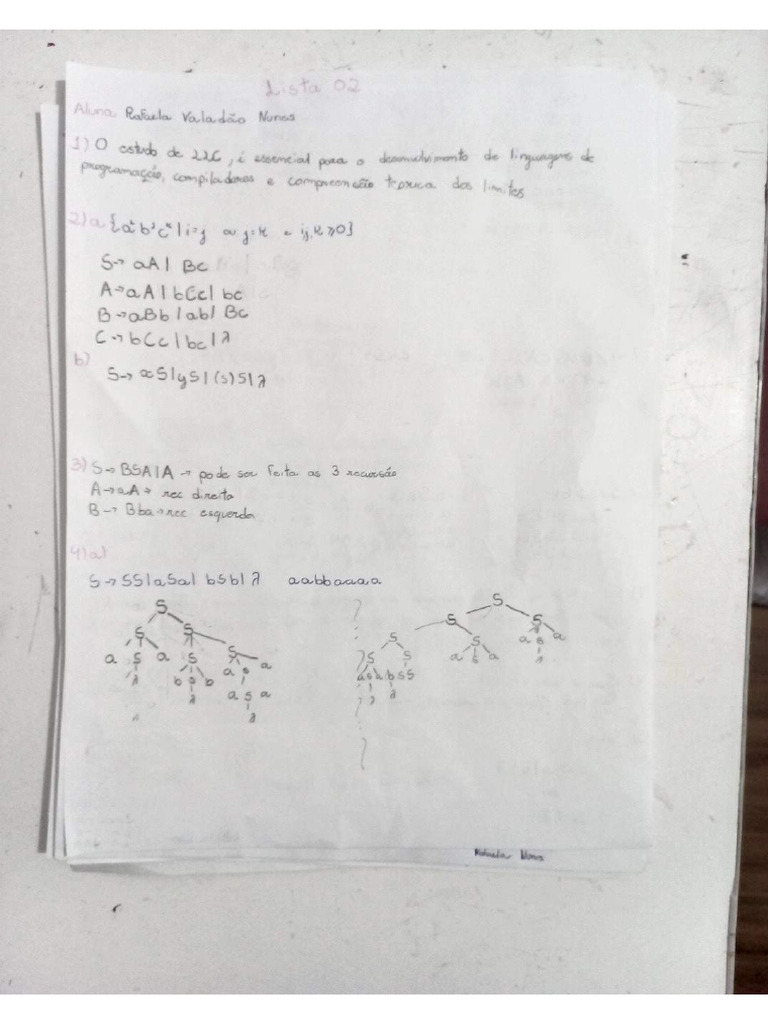 Lista 02
Aluna Rafaela Valadão Nunes
1) O estudo de LLC, é essencial para o desenvolvimento de linguagens de
programação, compiladores e compreensão teorica dos limites
2) a {aⁱbʲcᵏ | i=j ou j=k e i,j,k ≥ 0}
S → aA | Bc
A → aA | bCc | bc
B → aBb | ab | Bc
C → bCc | bc | λ
b)
S → xS | yS | (S)S | λ
3) S → BSA | A → pode ser feita as 3 recursão
A → aA → rec direita
B → Bba → rec esquerda
4) a)
S → SS | aSa | bSb | λ aabbaaaa
S S
S S S S
S S S
a S a S S a S a a S a
λ b S b a S a S S λ
λ a S a λ
λ
Rafaela Nunes